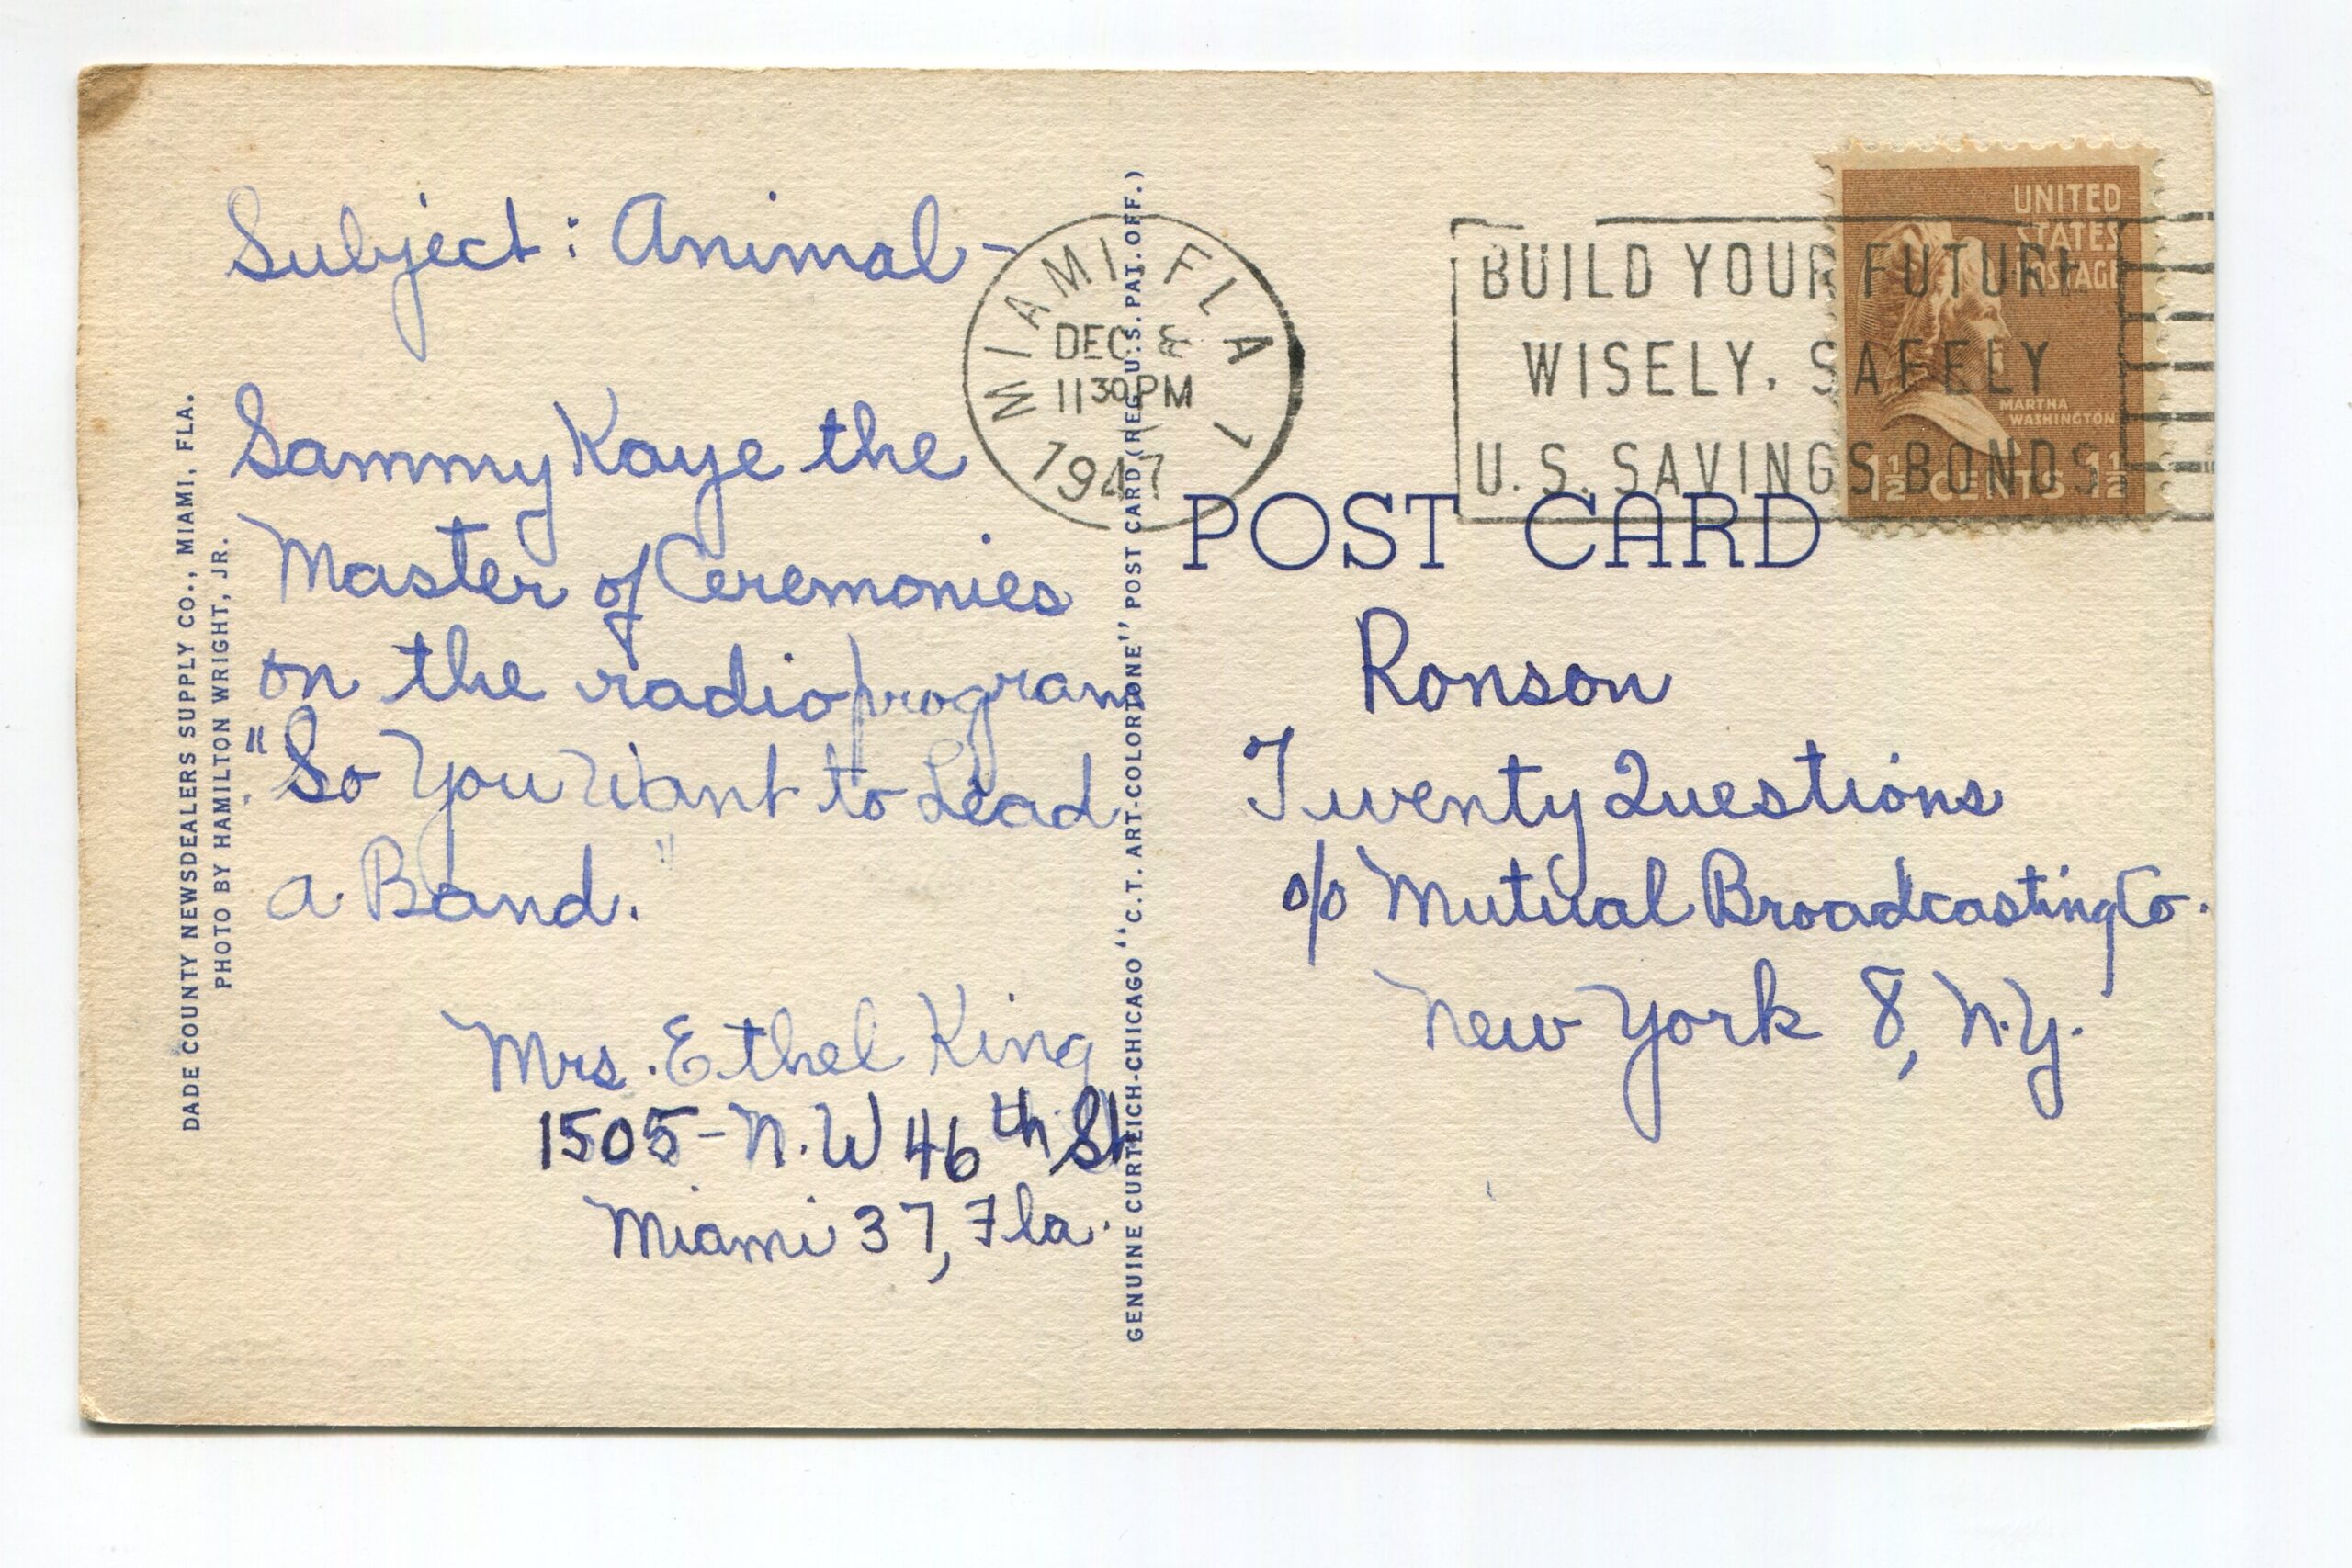 Subject: Animal-
Sammy Kaye the
Master of Ceremonies
on the radio program
"So You Want to Lead
a Band."
Mrs. Ethel King
1505-N.W 46th St
Miami 37, Fla.
DADE COUNTY NEWSDEALERS SUPPLY CO., MIAMI, FLA.
PHOTO BY HAMILTON WRIGHT, JR.
GENUINE CURTEICH-CHICAGO "C.T. ART-COLORTONE" POST CARD (REG. U.S. PAT. OFF.)
MIAMI, FLA 1
DEC 8
11 30 PM
1947
BUILD YOUR FUTURE
WISELY. SAFELY
U.S. SAVINGS BONDS
UNITED
STATES
POSTAGE
MARTHA
WASHINGTON
1½ CENTS 1½
POST CARD
Ronson
Twenty Questions
c/o Mutual Broadcasting Co.
New York 8, N.Y.